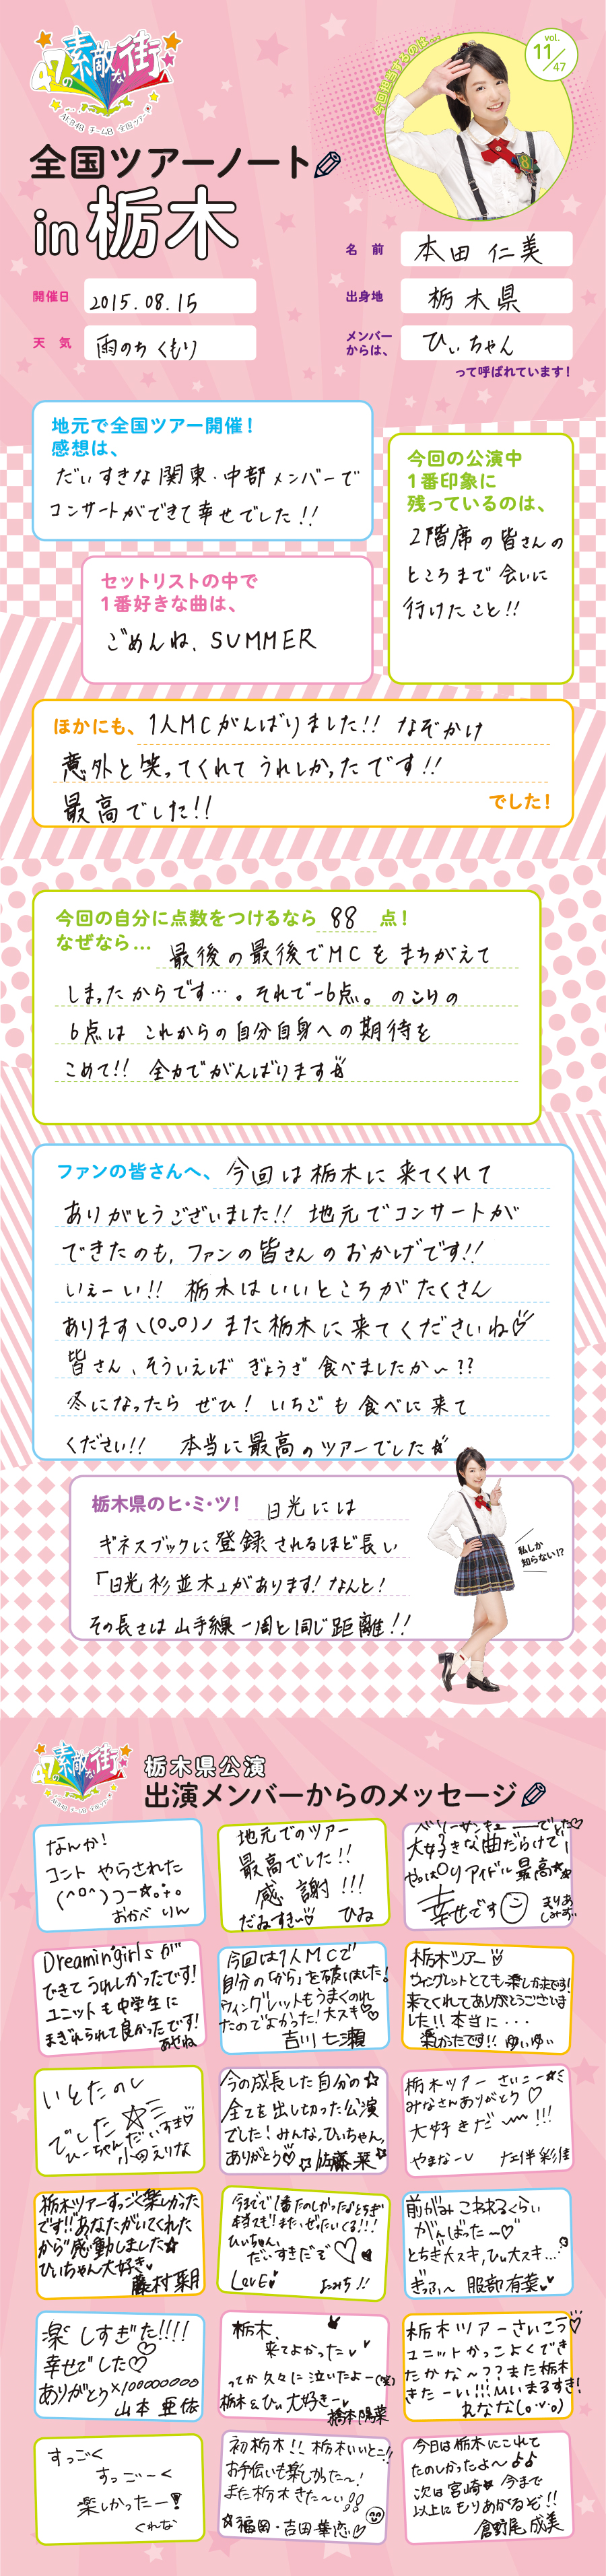 47の素敵な街へ
AKB48 チーム8 全国ツアー
今回担当するのは…
vol.
11/47
全国ツアーノート
in 栃木
名 前 本田 仁美
開催日 2015.08.15
出身地 栃木県
天 気 雨のち くもり
メンバーからは、 ひぃちゃん
って呼ばれています！
地元で全国ツアー開催！
感想は、
だいすきな関東・中部メンバーで
コンサートができて幸せでした!!
今回の公演中
1番印象に
残っているのは、
2階席の皆さんの
ところまで会いに
行けたこと!!
セットリストの中で
1番好きな曲は、
ごめんね、SUMMER
ほかにも、1人MCがんばりました!! なぞかけ
意外と笑ってくれてうれしかったです!!
最高でした!!
でした！
今回の自分に点数をつけるなら 88 点！
なぜなら… 最後の最後でMCをまちがえて
しまったからです…。それで-6点。のこりの
6点は これからの自分自身への期待を
こめて!! 全力でがんばります
ファンの皆さんへ、今回は栃木に来てくれて
ありがとうございました!! 地元でコンサートが
できたのも、ファンの皆さんのおかげです!!
いぇーい!! 栃木はいいところがたくさん
あります＼(o⌣o)ノ また栃木に来てくださいね♡
皆さん、そういえば ぎょうざ 食べましたか〜??
冬になったら ぜひ! いちごも食べに来て
ください!! 本当に最高のツアーでした☆
栃木県のヒ・ミ・ツ！ 日光には
ギネスブックに登録されるほど長い
「日光杉並木」があります! なんと!
その長さは山手線一周と同じ距離!!
私しか
知らない!?
47の素敵な街へ
AKB48 チーム8 全国ツアー
栃木県公演
出演メンバーからのメッセージ
なんか!
コント やらされた
おかべ りん
地元でのツアー
最高でした!!
感謝!!!
だねすきぃ♡ ひね
大好きな曲だらけで!
やっぱりアイドル最高
幸せです
Dreamin'girlsが
できてうれしかったです!
ユニットも中学生に
まぎれられて良かったです!
今回は1人MCで
自分の「から」を破りました!
ウィングレットもうまくのれ
たのでよかった! 大スキ♡
吉川 七瀬
栃木ツアー♡
ウィングレットとても楽しかったです!
来てくれてありがとうございま
した!! 本当に...
楽しかったです!! ゆいゆい
いとたのし
でした☆
ひーちゃんだいすき♡
小田えりな
今の成長した自分の☆
全てを出し切った公演
でした! みんな、ひぃちゃん、
ありがとう♡ ☆佐藤 栞☆
栃木ツアー さいこー☆
みなさんありがとう♡
大好きだ〜!!!
やまなーし 左伴 彩佳
栃木ツアーすっごく楽しかった
です!! あなたがいてくれた
から感動しました☆
ひぃちゃん大好き♥
藤村菜月
今までで1番たのしかった♪とちぎ
本当に! またぜったいくる!!!
ひぃちゃん、
だいすきだぞ♡
LovE
前がみ こわれるくらい
がんばった〜♡
とちぎ大スキ、ひぃ大スキ...
ぎっふ〜 服部有菜
楽しすぎた!!!!
幸せでした♡
ありがとう×100000000
山本 亜依
栃木、
来てよかった
ってか久々に泣いたよー(笑)
栃木&ひぃ大好きー
橋本陽菜
栃木ツアーさいこう♡
ユニットかっこよくでき
たかな〜?? また栃木
きたーい!!! ひぃまるすき!
れなな(o・v・o)
すっごく
すっごーく
楽しかったー!
くれな
初栃木!! 栃木いいとこ!!
お手伝いも楽しかった〜!
また栃木きた〜い!!
☆福岡・吉田 華恋
今日は栃木にこれて
たのしかったよ〜♪♪
次は宮崎 今まで
以上にもりあがるぞ!!
倉野尾 成美